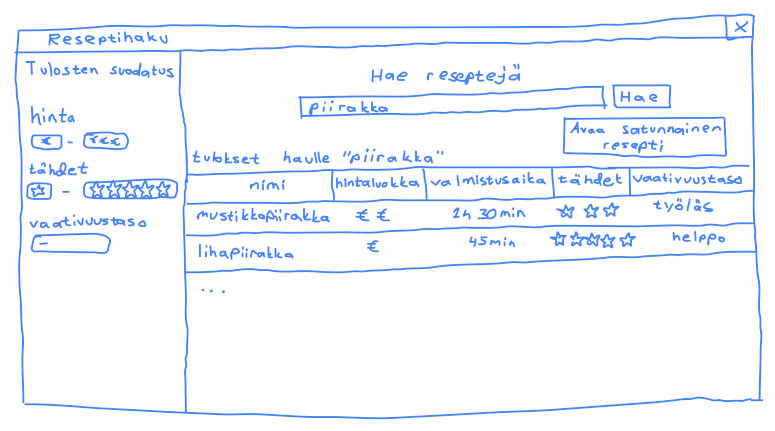 Reseptihaku X
Tulosten suodatus
hinta
€ - €€€
tähdet
☆ - ☆☆☆☆☆
vaativuustaso
-
Hae reseptejä
piirakka Hae
Avaa satunnainen
resepti
tulokset haulle "piirakka"
nimi hintaluokka valmistusaika tähdet vaativuustaso
mustikkapiirakka €€ 1h 30min ☆☆☆ työläs
lihapiirakka € 45min ☆☆☆☆☆ helppo
...